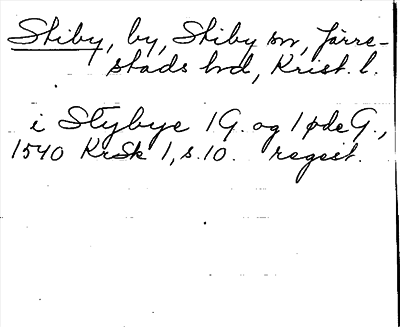 Stiby, by, Stiby sn, Järre-
stads hd, Krist. l.
i Stybye 1 G. og 1 øde G.,
1540 KrSk 1, s. 10. regest.